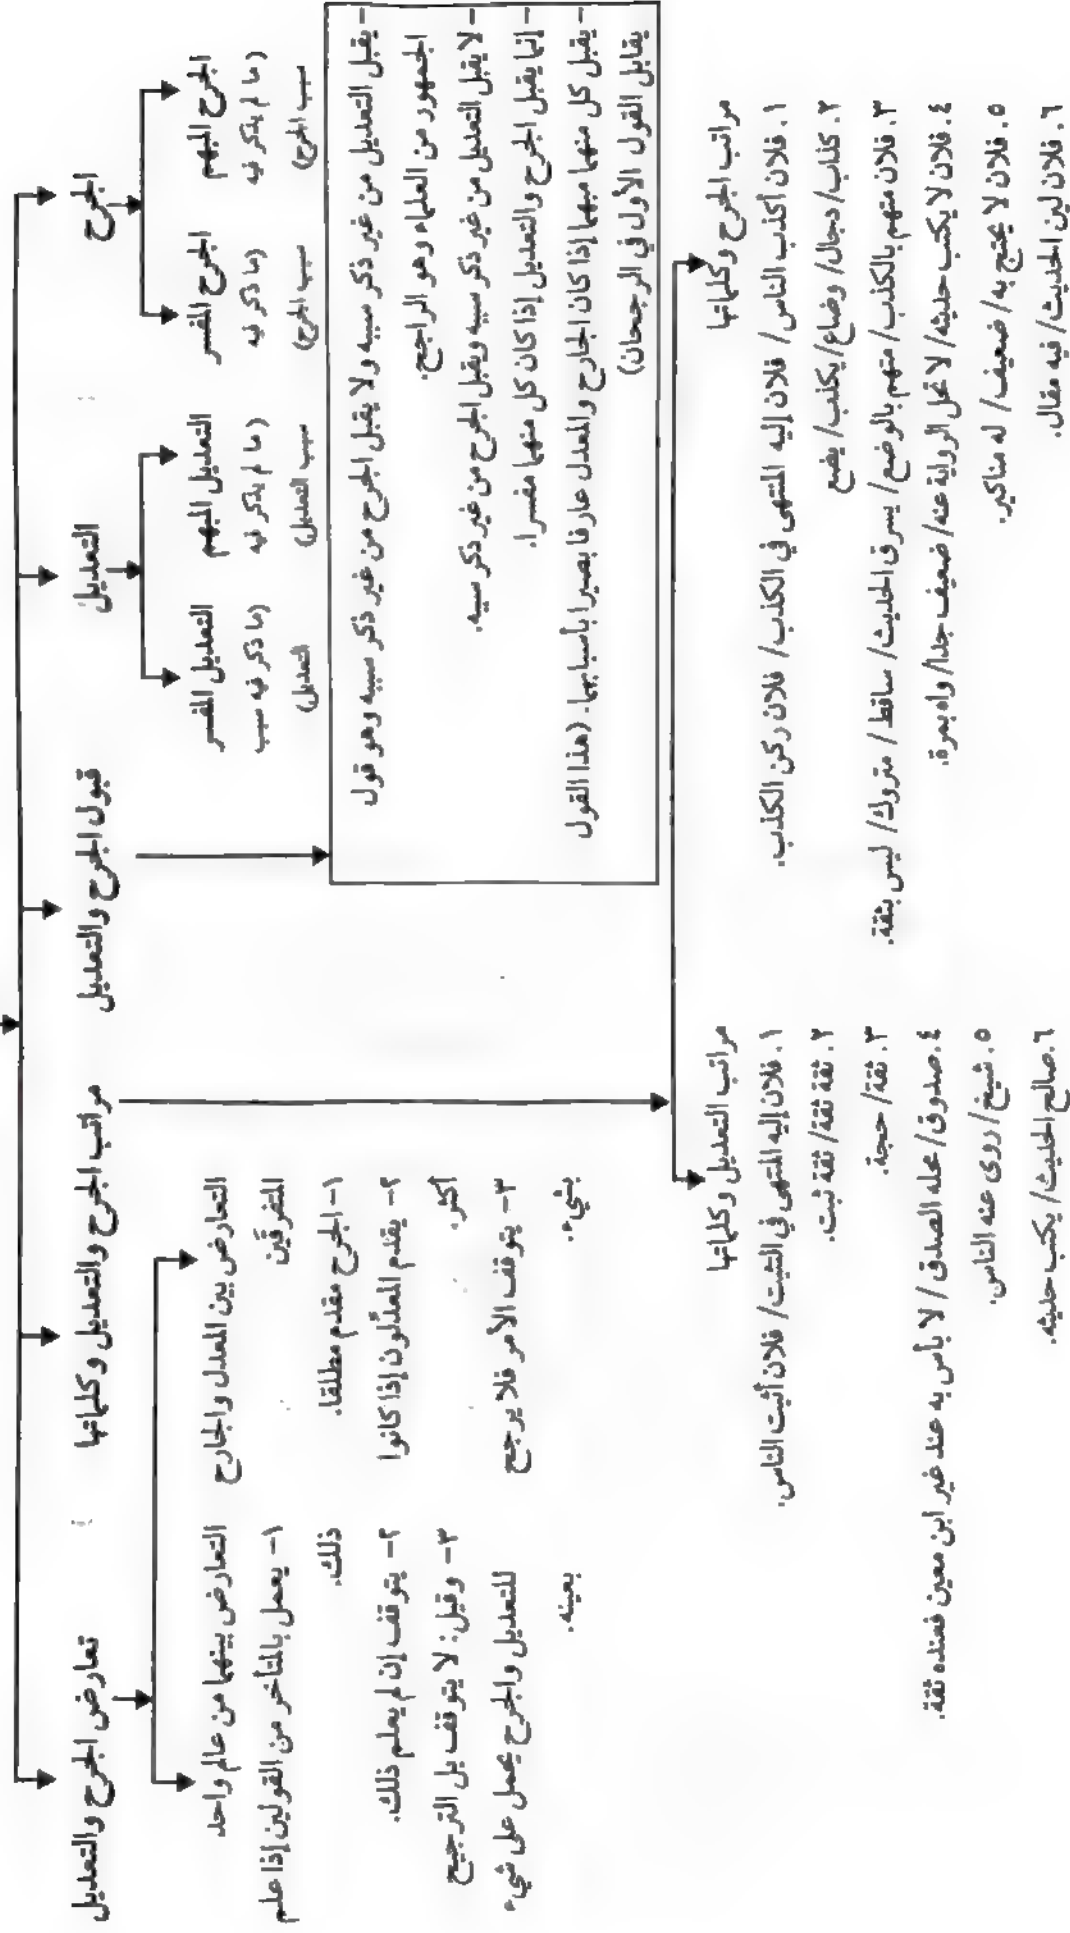 الجرح
الجرح المبهم
(ما لم يذكر فيه
سبب الجرح)
الجرح المفسر
(ما ذكر فيه
سبب الجرح)
التعديل
التعديل المبهم
(ما لم يذكر فيه
سبب التعديل)
التعديل المفسر
(ما ذكر فيه سبب
التعديل)
قبول الجرح والتعديل
- يقبل التعديل من غير ذكر سببه ولا يقبل الجرح من غير ذكر سببه وهو قول
الجمهور من العلماء وهو الراجح.
- لا يقبل التعديل من غير ذكر سببه ويقبل الجرح من غير ذكر سببه.
- إنما يقبل الجرح والتعديل إذا كان كل منهما مفسرا.
- يقبل كل منهما مبهما إذا كان الجارح والمعدل عارفا بصيرا بأسبابهما. (هذا القول
يقابل القول الأول في الرجحان)
مراتب الجرح والتعديل وكلماتها
مراتب الجرح وكلماتها
١. فلان أكذب الناس/ فلان إليه المنتهى في الكذب/ فلان ركن الكذب.
٢. كذاب/ دجال/ وضاع/ يكذب/ يضع
٣. فلان متهم بالكذب/ متهم بالوضع/ يسرق الحديث/ ساقط/ متروك/ ليس بثقة.
٤. فلان لا يكتب حديثه/ لا تحل الرواية عنه/ ضعيف جدا/ واه بمرة.
٥. فلان لا يحتج به/ ضعيف/ له مناكير.
٦. فلان لين الحديث/ فيه مقال.
مراتب التعديل وكلماتها
١. فلان إليه المنتهى في التثبت/ فلان أثبت الناس.
٢. ثقة ثقة/ ثقة ثبت.
٣. ثقة/ حجة.
٤. صدوق/ محله الصدق/ لا بأس به عند غير ابن معين فعنده ثقة.
٥. شيخ/ روى عنه الناس.
٦. صالح الحديث/ يكتب حديثه.
تعارض الجرح والتعديل
التعارض بين المعدل والجارح
المتفرقين
١- الجرح مقدم مطلقا.
٢- يقدم المعدّلون إذا كانوا
أكثر.
٣- يتوقف الأمر فلا يرجح
بشيء.
التعارض بينهما من عالم واحد
١- يعمل بالمتأخر من القولين إذا علم
ذلك.
٢- يتوقف إن لم يعلم ذلك.
٣- وقيل: لا يتوقف بل الترجيح
للتعديل والجرح يحمل على شيء
بعينه.